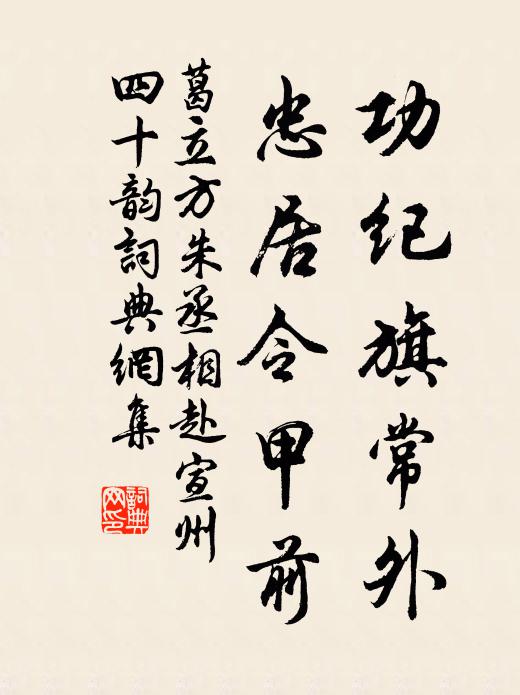 功纪旗常外
忠居令甲前
葛立方朱丞相赴宣州
四十韵詞典網集
詞典
网印